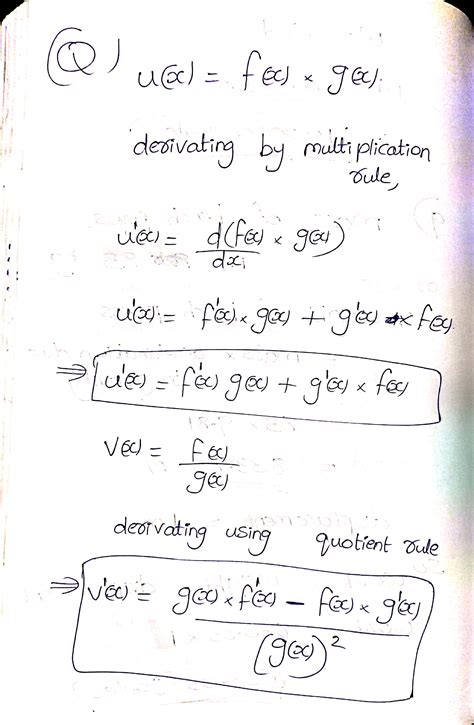 (Q) u(x) = f(x) × g(x).
derivating by multiplication
rule,
u'(x) = d(f(x) × g(x))
dx
u'(x) = f'(x) × g(x) + g'(x) × f(x)
⇒ u'(x) = f'(x) g(x) + g'(x) × f(x)
v(x) = f(x)
g(x)
derivating using quotient rule
⇒ v'(x) = g(x) × f'(x) − f(x) × g'(x)
(g(x))²